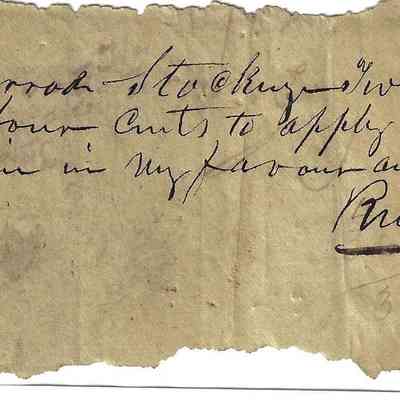 Stockings Tw
four Cents to apply
in my favour a